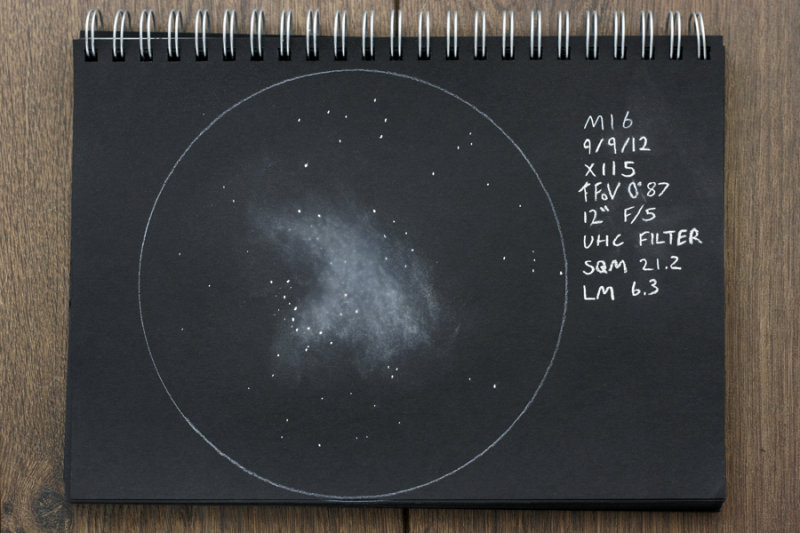 M16
9/9/12
X115
TFOV 0°87
12" F/5
UHC FILTER
SQM 21.2
LM 6.3